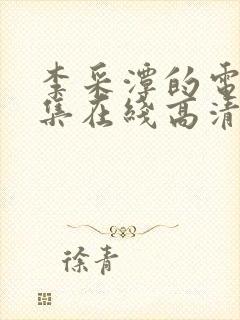 李采潭的電
集在綫高清
徐青